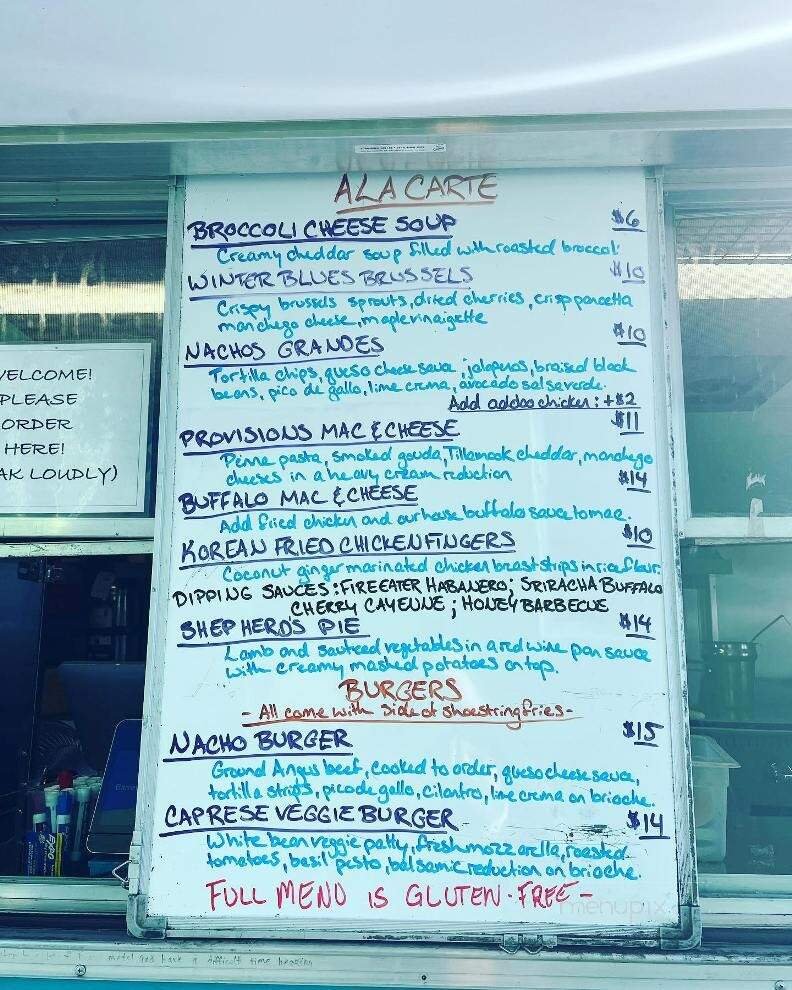 ALA CARTE
BROCCOLI CHEESE SOUP $6
Creamy cheddar soup filled with roasted broccoli
WINTER BLUES BRUSSELS $10
Crispy brussels sprouts, dried cherries, crisp pancetta
manchego cheese, maple vinaigette
NACHOS GRANDES $10
Tortilla chips, queso cheese sauce, jalapenos, braised black
beans, pico de gallo, lime crema, avocado salsa verde.
Add adobo chicken: +$2
PROVISIONS MAC & CHEESE $11
Penne pasta, smoked gouda, Tillamook cheddar, manchego
cheeses in a heavy cream reduction
BUFFALO MAC & CHEESE $14
Add fried chicken and our house buffalo sauce to mac.
KOREAN FRIED CHICKEN FINGERS $10
Coconut ginger marinated chicken breast strips in rice flour.
DIPPING SAUCES: FIREEATER HABANERO; SRIRACHA BUFFALO
CHERRY CAYENNE; HONEY BARBECUE
SHEPHERD'S PIE $14
Lamb and sauteed vegetables in a red wine pan sauce
with creamy mashed potatoes on top.
BURGERS
- All come with side of shoestring fries -
NACHO BURGER $15
Ground Angus beef, cooked to order, queso cheese sauce,
tortilla strips, pico de gallo, cilantro, lime crema on brioche.
CAPRESE VEGGIE BURGER $14
White bean veggie patty, fresh mozzarella, roasted
tomatoes, basil pesto, balsamic reduction on brioche.
FULL MENU IS GLUTEN-FREE -
ELCOME!
PLEASE
ORDER
HERE!
AK LOUDLY)
EXPO
menupix